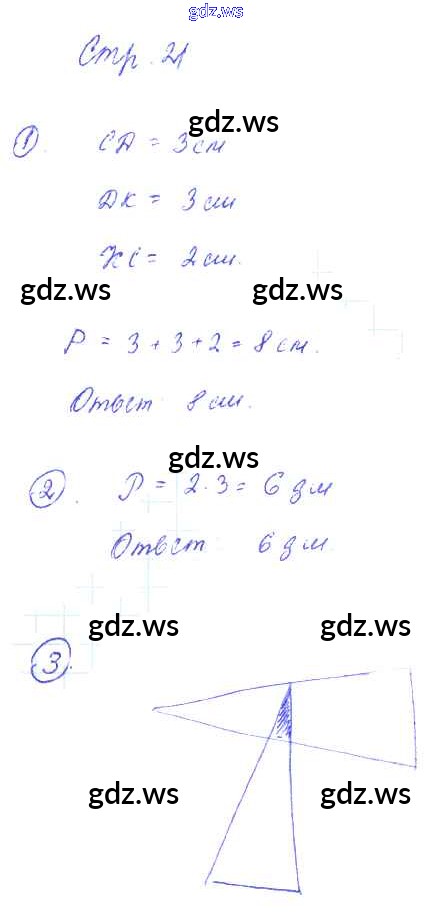 gdz.ws
Стр. 21
gdz.ws
1. СД = 3 см
ДК = 3 см
КС = 2 см.
gdz.ws gdz.ws
Р = 3 + 3 + 2 = 8 см.
Ответ 8 см.
gdz.ws
2. Р = 2 · 3 = 6 дм
Ответ: 6 дм.
gdz.ws gdz.ws
3.
gdz.ws gdz.ws